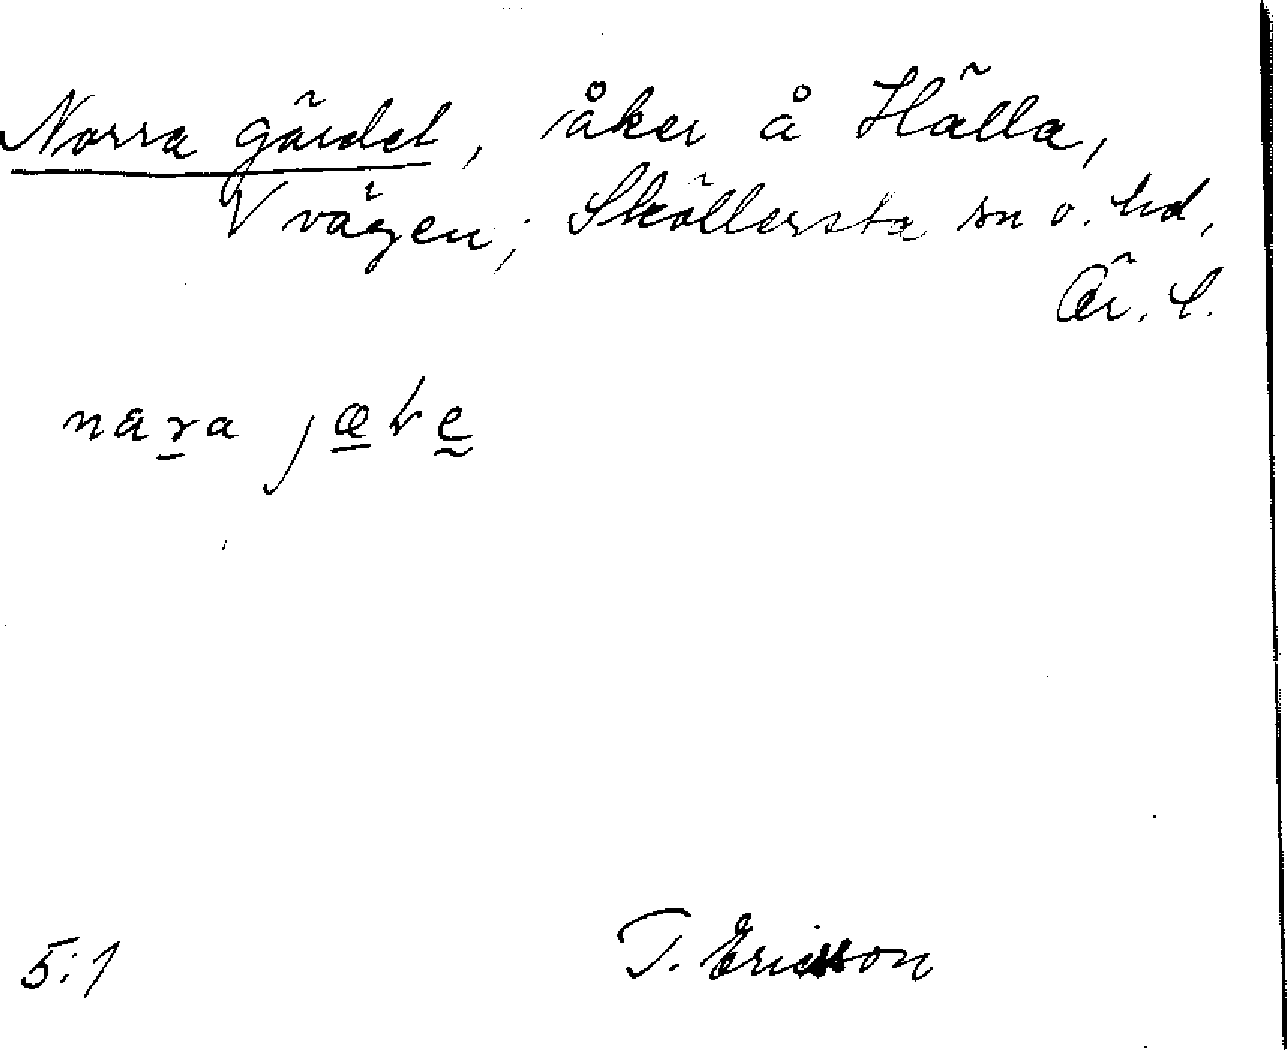 Norra gärdet, åker å Hälla,
V vägen; Sköllersta sn o. hd,
Ör. l.
nara jæ
5:1
T. Ericsson